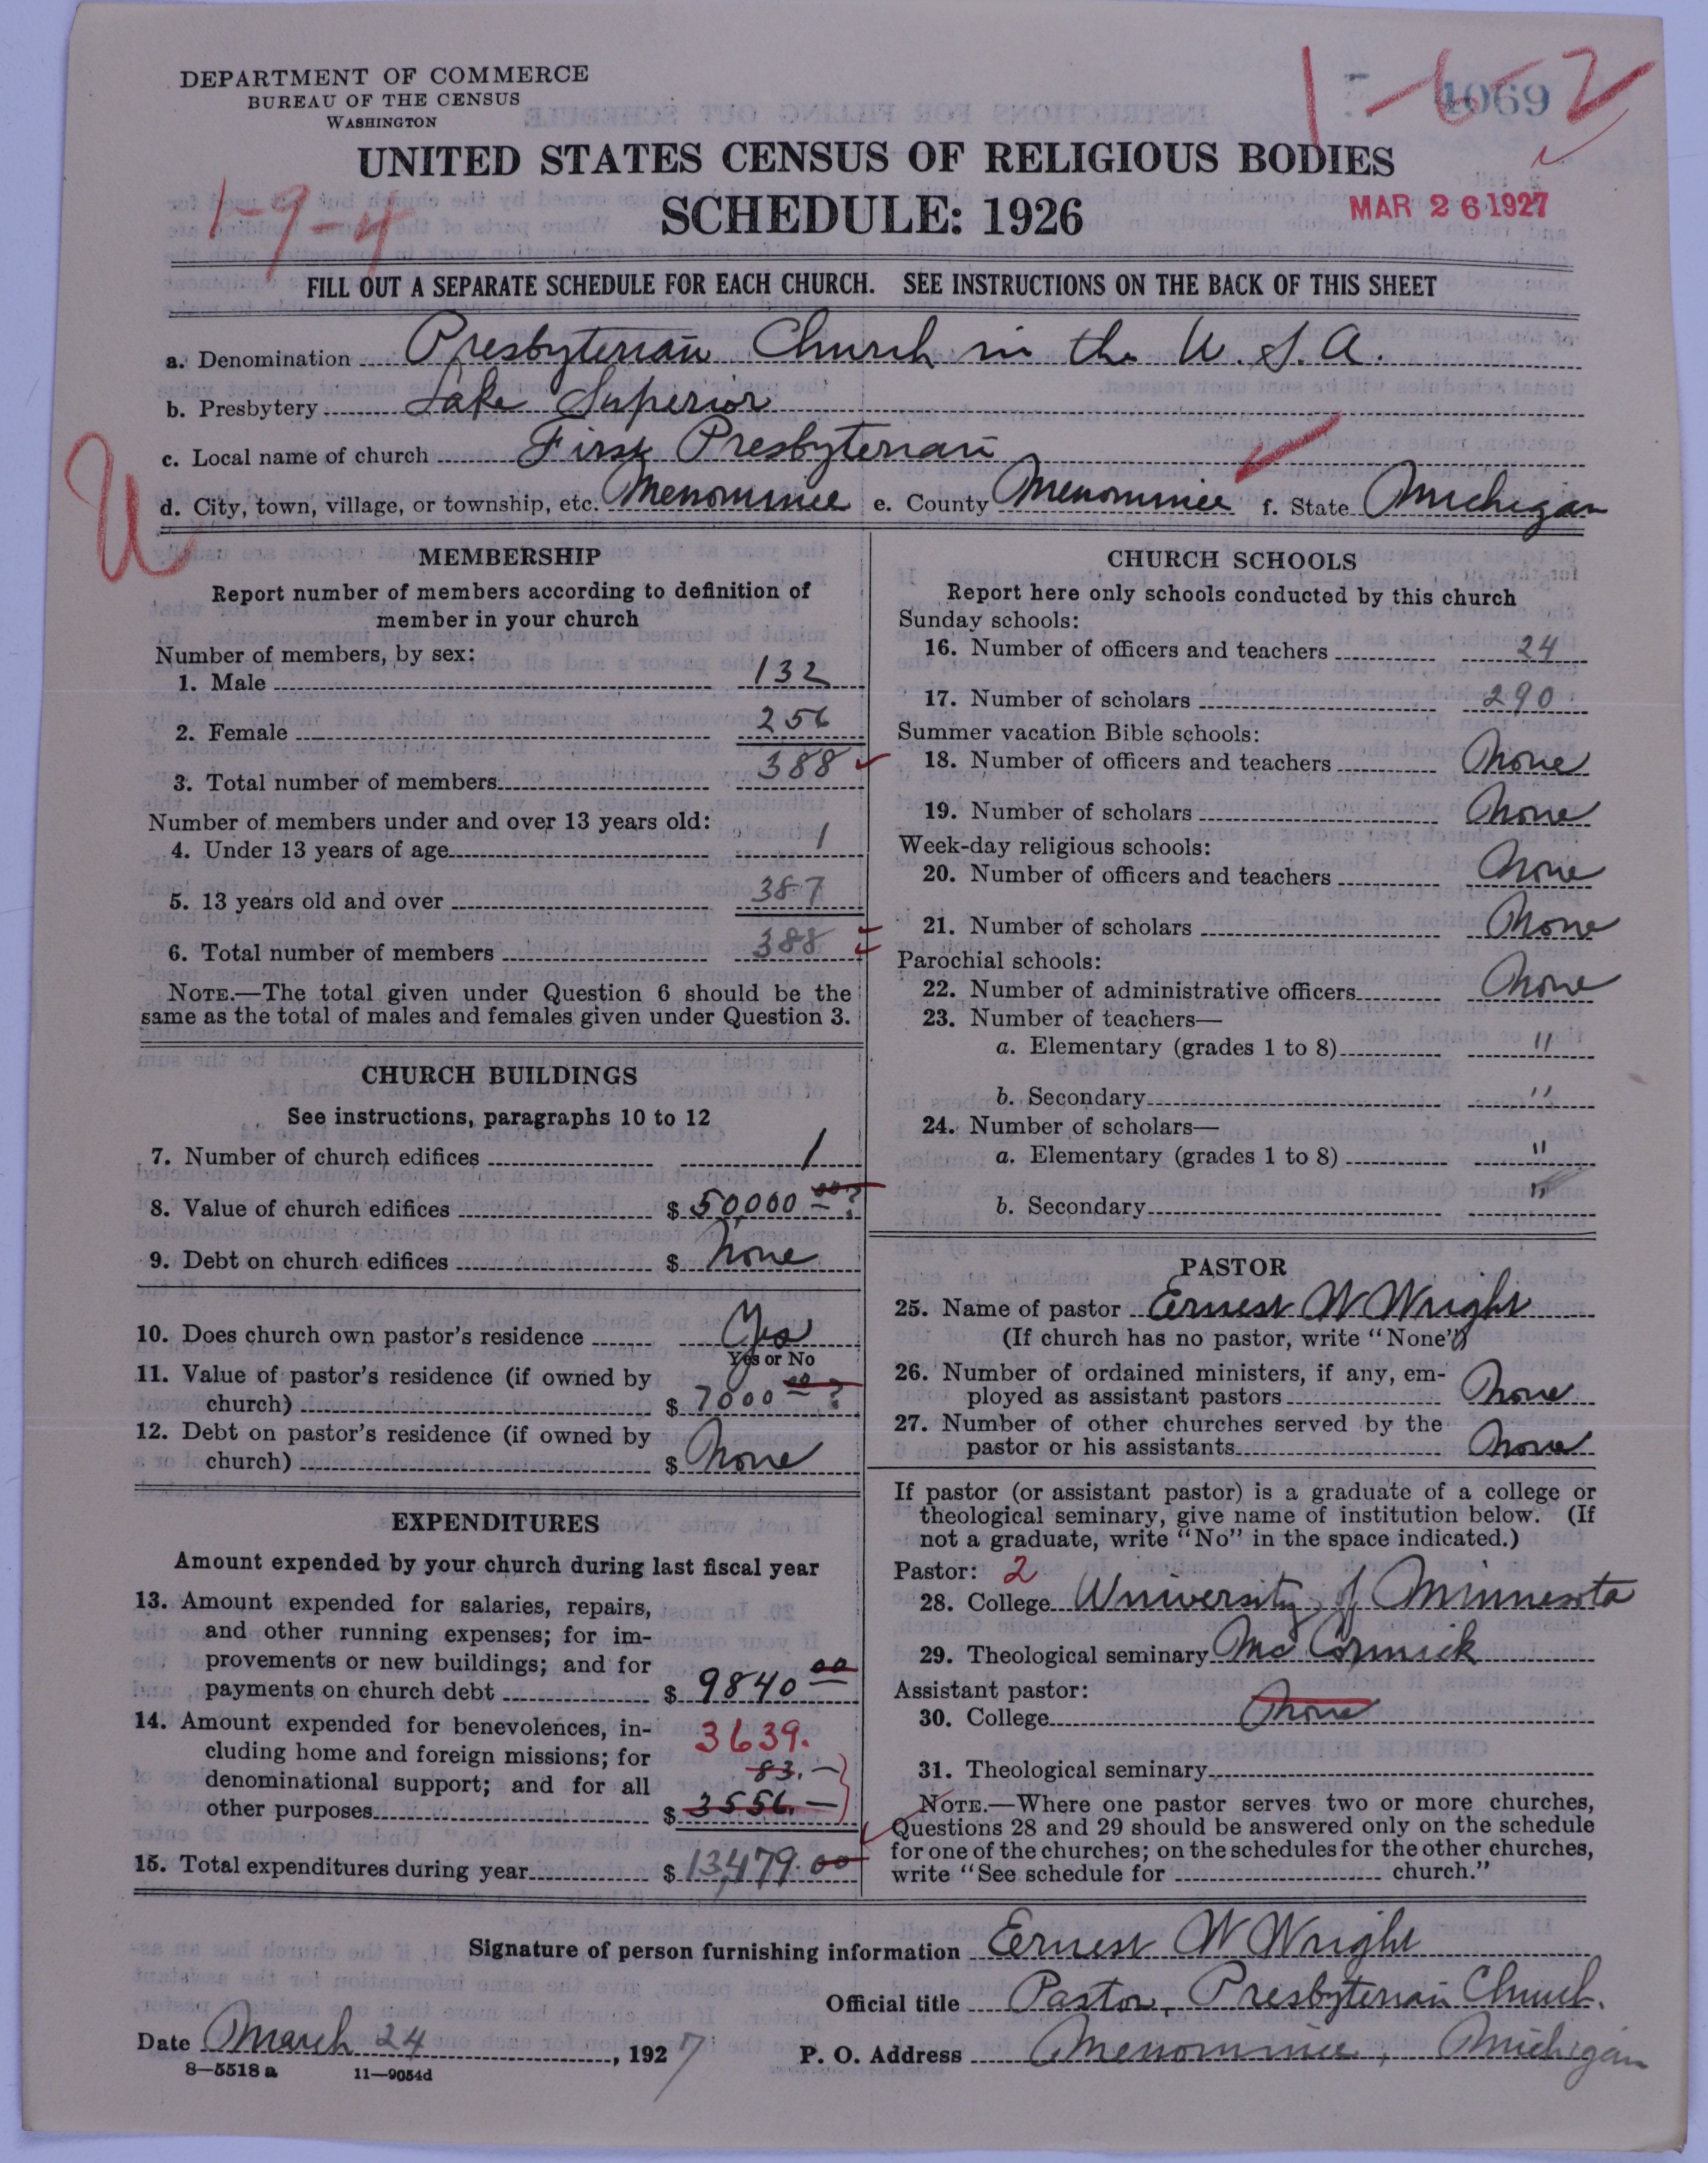 DEPARTMENT OF COMMERCE
BUREAU OF THE CENSUS
WASHINGTON
1-6-2
4069
UNITED STATES CENSUS OF RELIGIOUS BODIES
1-9-4
SCHEDULE: 1926
MAR 26 1927
FILL OUT A SEPARATE SCHEDULE FOR EACH CHURCH. SEE INSTRUCTIONS ON THE BACK OF THIS SHEET
a. Denomination Presbyterian Church in the U.S.A.
b. Presbytery Lake Superior
c. Local name of church First Presbyterian
U
d. City, town, village, or township, etc. Menominee e. County Menominee f. State Michigan
MEMBERSHIP
Report number of members according to definition of
member in your church
Number of members, by sex:
1. Male 132
2. Female 256
3. Total number of members 388
Number of members under and over 13 years old:
4. Under 13 years of age 1
5. 13 years old and over 387
6. Total number of members 388
NOTE.—The total given under Question 6 should be the
same as the total of males and females given under Question 3.
CHURCH BUILDINGS
See instructions, paragraphs 10 to 12
7. Number of church edifices 1
8. Value of church edifices $ 50,000 00 ?
9. Debt on church edifices $ None
10. Does church own pastor's residence Yes
Yes or No
11. Value of pastor's residence (if owned by
church) $ 7000 00 ?
12. Debt on pastor's residence (if owned by
church) $ None
EXPENDITURES
Amount expended by your church during last fiscal year
13. Amount expended for salaries, repairs,
and other running expenses; for im-
provements or new buildings; and for
payments on church debt $ 9840 00
14. Amount expended for benevolences, in- 3639.
cluding home and foreign missions; for
83.—
denominational support; and for all
other purposes $ 3556.—
15. Total expenditures during year $ 13,479.00
CHURCH SCHOOLS
Report here only schools conducted by this church
Sunday schools:
16. Number of officers and teachers 24
17. Number of scholars 290
Summer vacation Bible schools:
18. Number of officers and teachers None
19. Number of scholars None
Week-day religious schools:
20. Number of officers and teachers None
21. Number of scholars None
Parochial schools:
22. Number of administrative officers None
23. Number of teachers—
a. Elementary (grades 1 to 8) "
b. Secondary "
24. Number of scholars—
a. Elementary (grades 1 to 8) "
b. Secondary "
PASTOR
25. Name of pastor Ernest W Wright
(If church has no pastor, write "None")
26. Number of ordained ministers, if any, em-
ployed as assistant pastors None
27. Number of other churches served by the
pastor or his assistants None
If pastor (or assistant pastor) is a graduate of a college or
theological seminary, give name of institution below. (If
not a graduate, write "No" in the space indicated.)
Pastor: 2
28. College University of Minnesota
29. Theological seminary McCormick
Assistant pastor:
30. College None
31. Theological seminary
NOTE.—Where one pastor serves two or more churches,
Questions 28 and 29 should be answered only on the schedule
for one of the churches; on the schedules for the other churches,
write "See schedule for church."
Signature of person furnishing information Ernest W Wright
Official title Pastor, Presbyterian Church.
Date March 24, 1927 P. O. Address Menominee, Michigan
8—5518 a 11—9054d